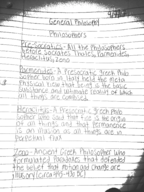 General Philosophy
Philosophers
Pre-Socratics - All the Philosophers
before Socrates. Thales, Parmenides,
Heraclitus, Zeno
Parmenides - A Presocratic Greek Phil
osopher who
that being is the basic
substance and
of which
all things are composed.
Heraclitus - A Presocratic Greek Philo
sopher who said that fire is the origin
of all things and that permanence
is an illusion as all things are in
perpetual flux.
Zeno - Ancient Greek Philosopher who
formulated paradoxes that defended
the belief that motion and change are
illusory (circa 495-430 BC)